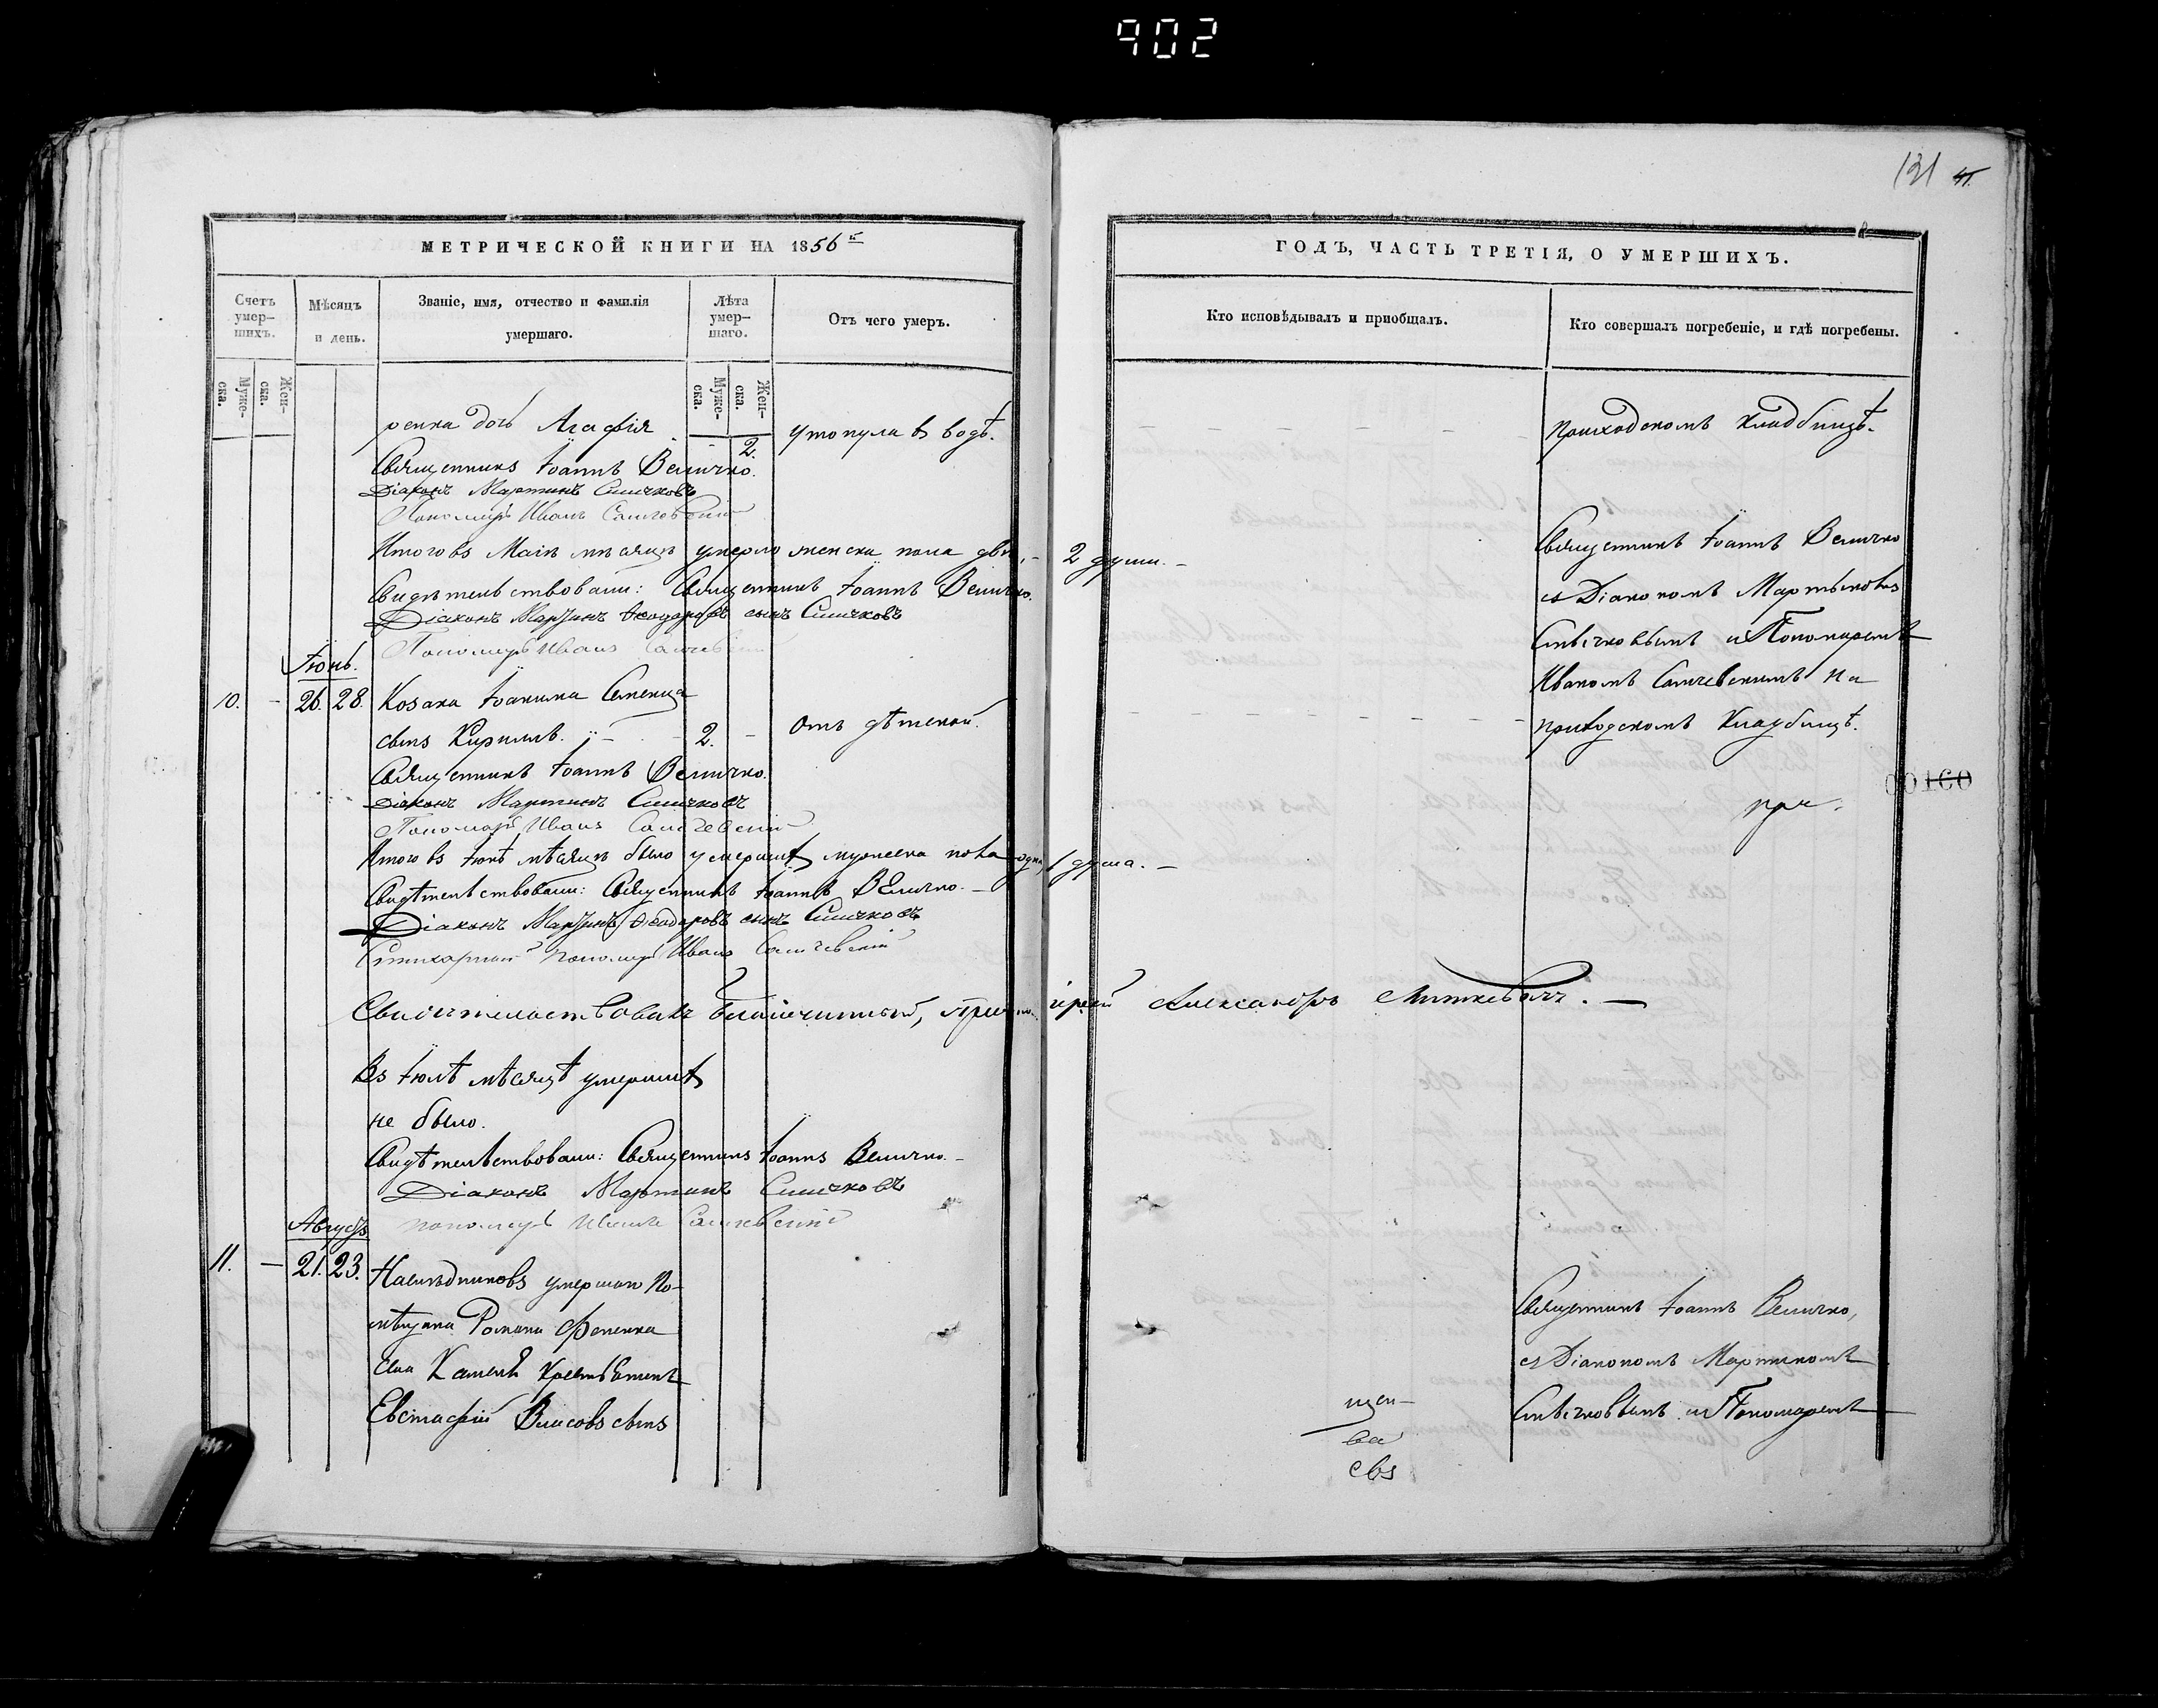 902
131
МЕТРИЧЕСКОЙ КНИГИ НА 1856й
Счетъ умер-шихъ.
Мѣсяцъ и день.
Званіе, имя, отчество и фамилія умершаго.
Лѣта умер-шаго.
Отъ чего умеръ.
Муже-ска.
Жен-ска.
Муже-ска.
Жен-ска.
ренка дочь Агафія 2. утонула въ водѣ.
Священникъ Іоаннъ Величко.
Діаконъ Мартинъ
Пономарь Иванъ
Итого въ Маіѣ мѣсяцѣ умерло женска пола двѣ, - 2 души. -
Свидѣтельствовали: Священникъ Іоаннъ Величко.
Діаконъ Мартинъ Ѳеодоровъ сынъ
Пономарь Иванъ
Іюнь.
10. - 26. 28. Козака Іоакима
сынъ Кирилъ. - 2. - Отъ дѣтской.
Священникъ Іоаннъ Величко.
Діаконъ Мартинъ
Пономарь Иванъ
Итого въ Іюнѣ мѣсяцѣ было умершихъ мужеска пола одна, 1 душа. -
Свидѣтельствовали: Священникъ Іоаннъ Величко. -
Діаконъ Мартинъ Ѳеодоровъ сынъ
Стихарный пономарь Иванъ
Свидѣтельствовалъ благочинный, Александръ
Въ Іюлѣ мѣсяцѣ умершихъ
не было.
Свидѣтельствовали: Священникъ Іоаннъ Величко. -
Діаконъ Мартинъ
пономарь Иванъ
Августъ
11. - 21. 23. Наслѣдниковъ умершаго По-
мѣщика Романа
села крестьянинъ
Евстафій Власовъ сынъ
ГОДЪ, ЧАСТЬ ТРЕТІЯ, О УМЕРШИХЪ.
Кто исповѣдывалъ и пріобщалъ.
Кто совершалъ погребеніе, и гдѣ погребены.
приходскомъ кладбищѣ.
Священникъ Іоаннъ Величко
съ Діакономъ
и Пономаремъ
Иваномъ на
приходскомъ Кладбищѣ.
00160
при-
Священникъ Іоаннъ Величко,
съ Діакономъ Мартиномъ
и Пономаремъ
щен-
ва
свя